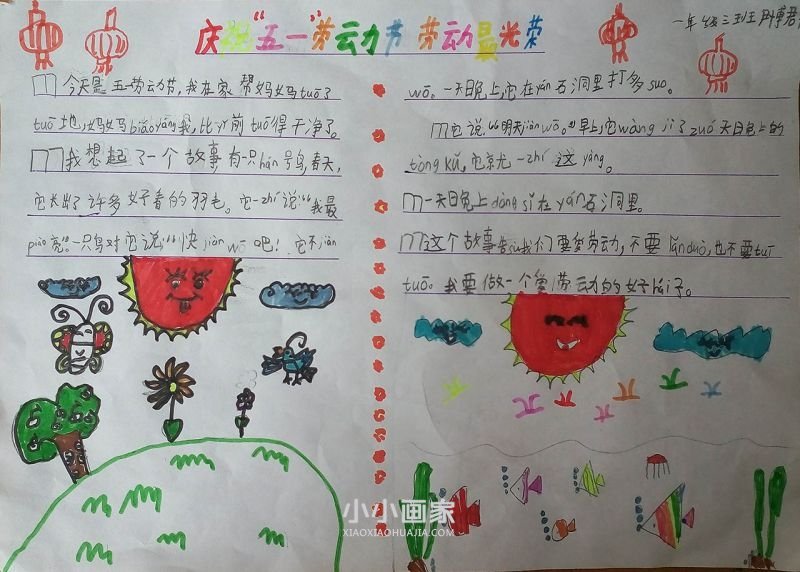 庆祝“五一”劳动节 劳动最光荣
一年级三班
今天是五一劳动节，我在家帮妈妈tuō了
tuō地，妈妈biǎoyáng我，比yǐ前tuō得干净了。
我想起了一个故事有一只hán号鸟，春天，
它长出了许多好看的羽毛。它一zhí说“我最
piào亮”。一只鸟对它说“快jiàn wō吧！它不jiàn
wō。一天晚上，它在yán石洞里打多suo。
它说“明天jiàn wō。”早上，它wàng jì了zuó天日晚上的
tòng kǔ，它京尤一zhí这yàng。
一天日晚上dòng sǐ在yán石洞里。
这个故事告su我们要爱劳动，不要lǎn duò，也不要tuī
tuō。我要做一个爱劳动的好hái子。
小小画家
XIAOXIAOHUAJIA.COM